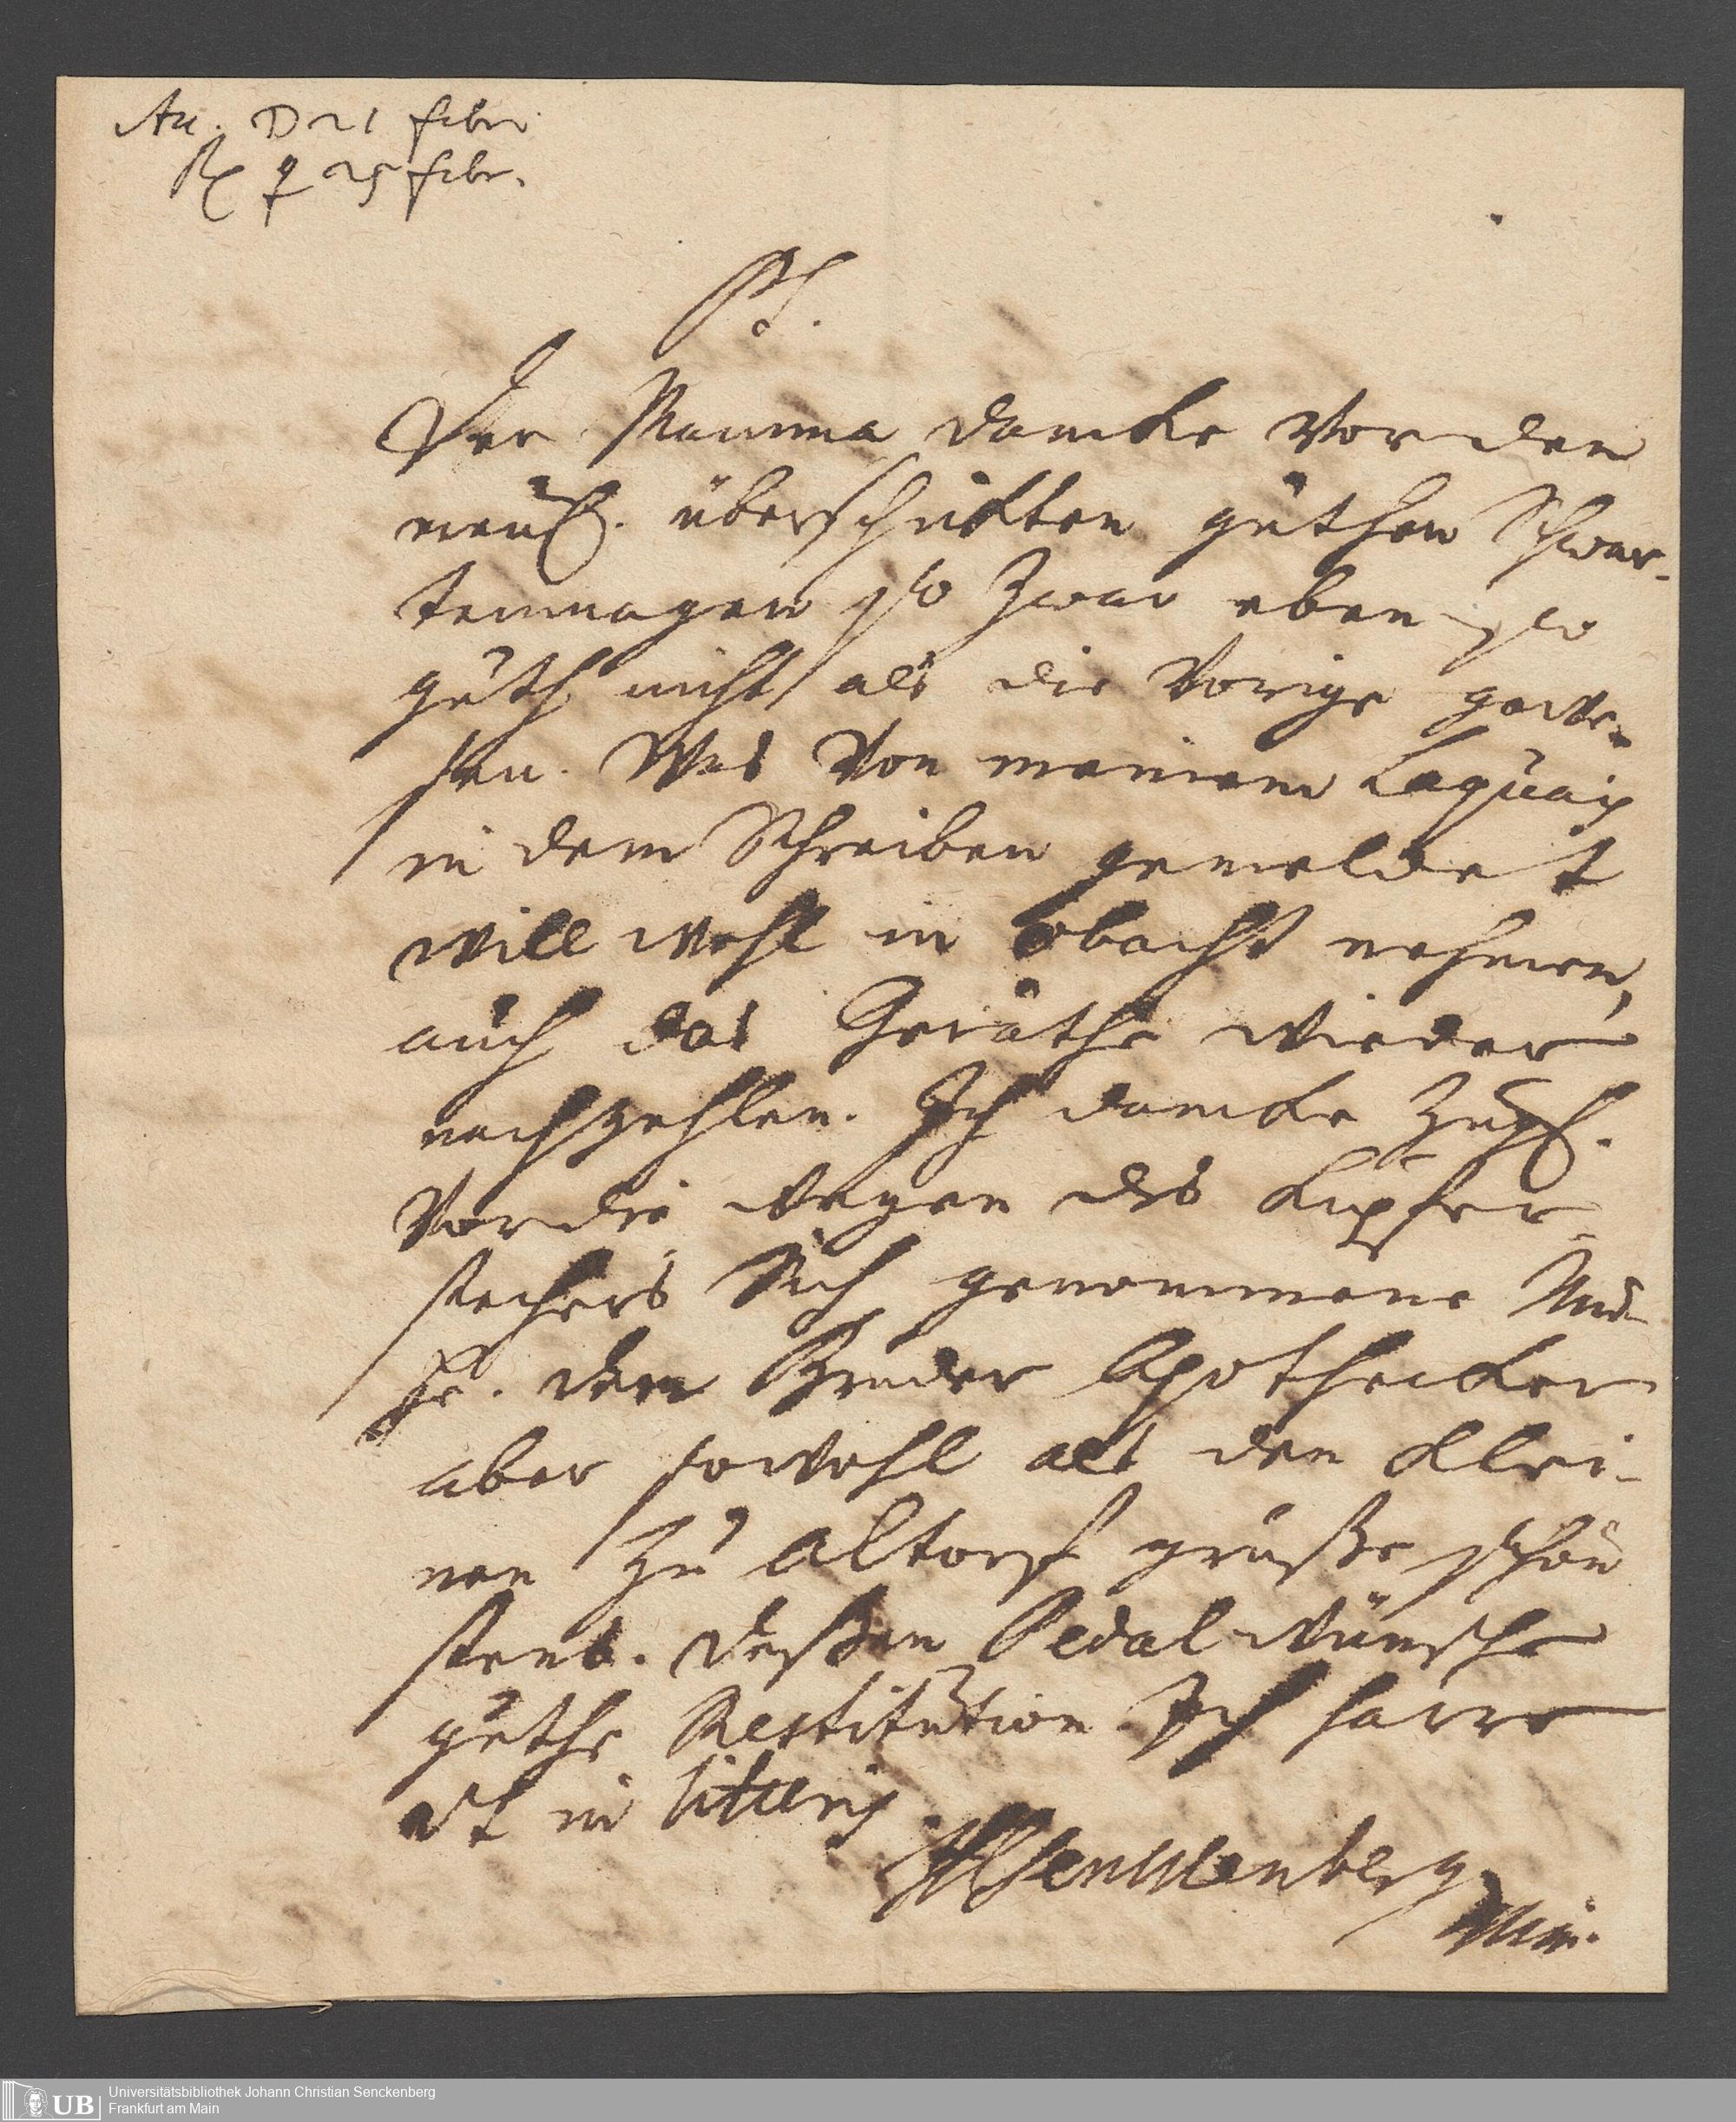 An. ☽ 21 febr.
Rx ♀ 25 febr.
PS.
Der Mamma dancke vor den
neul. überschickten guthen Schwar-
temagen so zwar eben so
guth nicht als die vorige gewe-
sen. Was von meinem Laquaip
in dem Schreiben gemeldet
will wohl in obacht nehmen,
auch das Geräthe wieder
nachzehlen. Ich dancke zugl.
vor die wegen des Kupfer
stechers Sich genommene Mü-
he. dem Bruder Apothecker
aber sowohl als den klei-
nen zu Altorf grüße schön
stens. deßen Pedal wünsche
guthe Restitution. Ich harre
ut in litteris.
Senckenberg
Mpr.
Universitätsbibliothek Johann Christian Senckenberg
Frankfurt am Main
UB